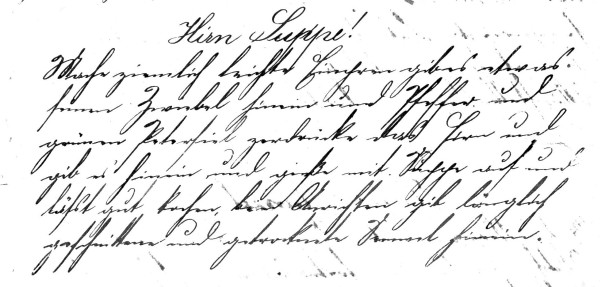 Hirn Suppe!
Mache ziemlich leichte Einbren gib es etwas
feinen Zwiebel hinein und Pfeffer und
grünen Petersiel zerdrücke das Hirn und
gib es hinein und gieße mit Suppe auf und
läßt gut kochen, beim Anrichten gib länglich
geschnittene und getrocknete Semmel hinein.